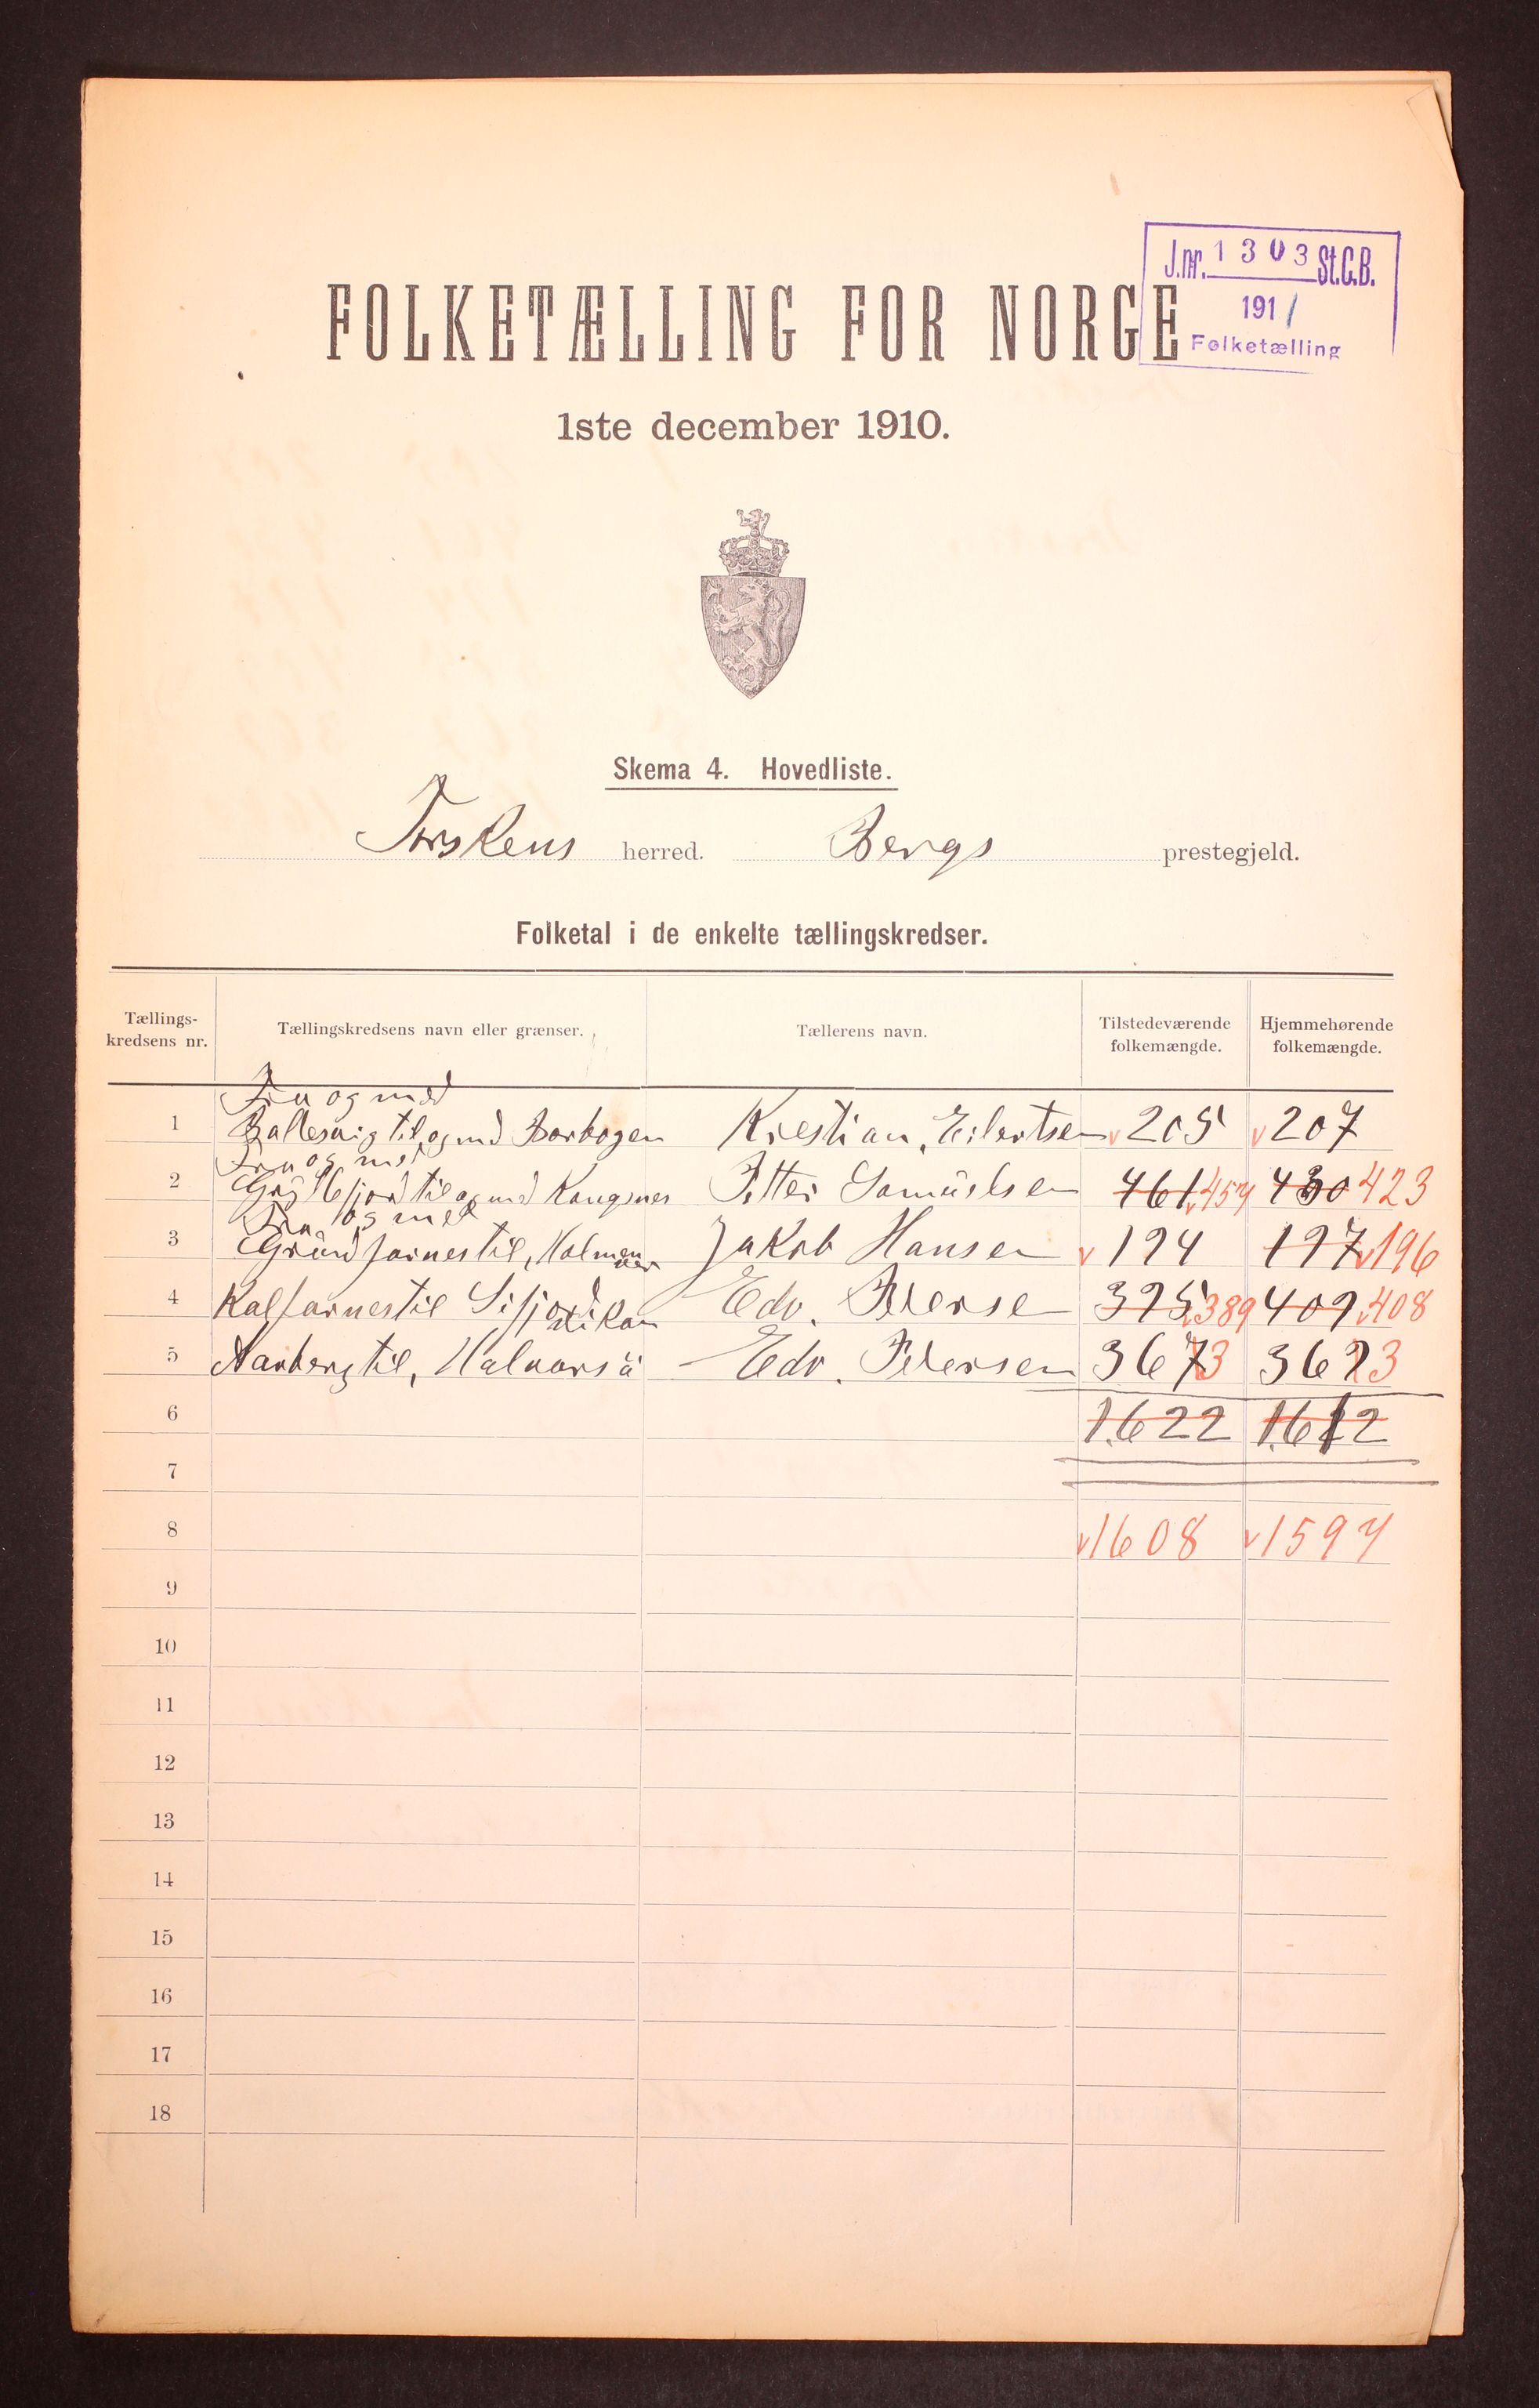 J.nr. 1303 St.C.B.
1911
Folketælling
FOLKETÆLLING FOR NORGE
1ste december 1910.
Skema 4. Hovedliste.
Torskens herred. Bergs prestegjeld.
Folketal i de enkelte tællingskredser.
Tællings-kredsens nr. Tællingskredsens navn eller grænser. Tællerens navn. Tilstedeværende folkemængde. Hjemmehørende folkemængde.
Fra og med
1 Ballesvig til og med Borbogen Kristian, Eilertsen 205 207
Fra og med
2 Gryllefjord til og med Kongsnes Petter Samuelsen 461 457 430 423
Fra og med
3 til, Holmen Jakob Hansen 194 197 196
4 til Sifjord Edv. Peterse 395 389 409 408
5 Aarberg til, Edv. Petersen 367 3 367 3
6 1622 1612
7
8 1608 1597
9
10
11
12
13
14
15
16
17
18